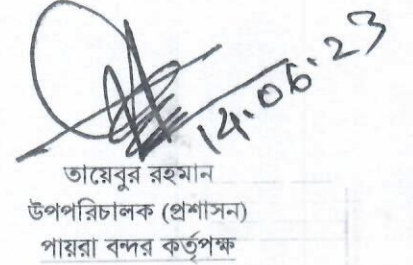 14.06.23
তায়েবুর রহমান
উপপরিচালক (প্রশাসন)
পায়রা বন্দর কর্তৃপক্ষ